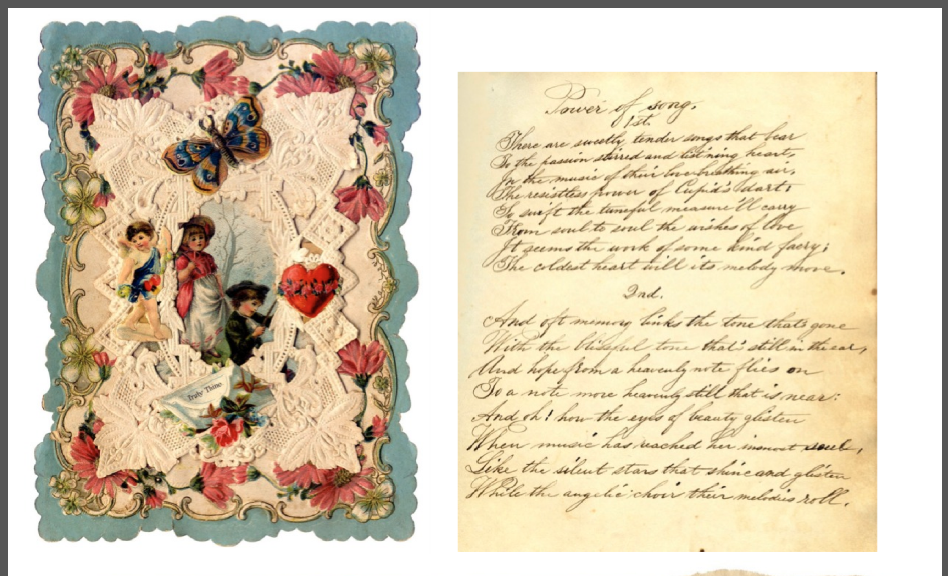 Truly Thine.
Power of song.
1st.
There are sweetly tender songs that bear
To the passion stirred and list'ning heart,
In the music of their love-breathing air,
The resistless power of Cupid's dart:
So swift the tuneful measure'll carry
From soul to soul the wishes of love
It seems the work of some kind faery;
The coldest heart will its melody move.
2nd.
And oft memory links the tone that's gone
With the blissful tone that's still in the ear,
And hope from a heavenly note flies on
To a note more heavenly still that is near:
And oh! how the eyes of beauty glisten
When music has reached her inmost soul,
Like the silent stars that shine and glisten
While the angelic choir their melodies roll.